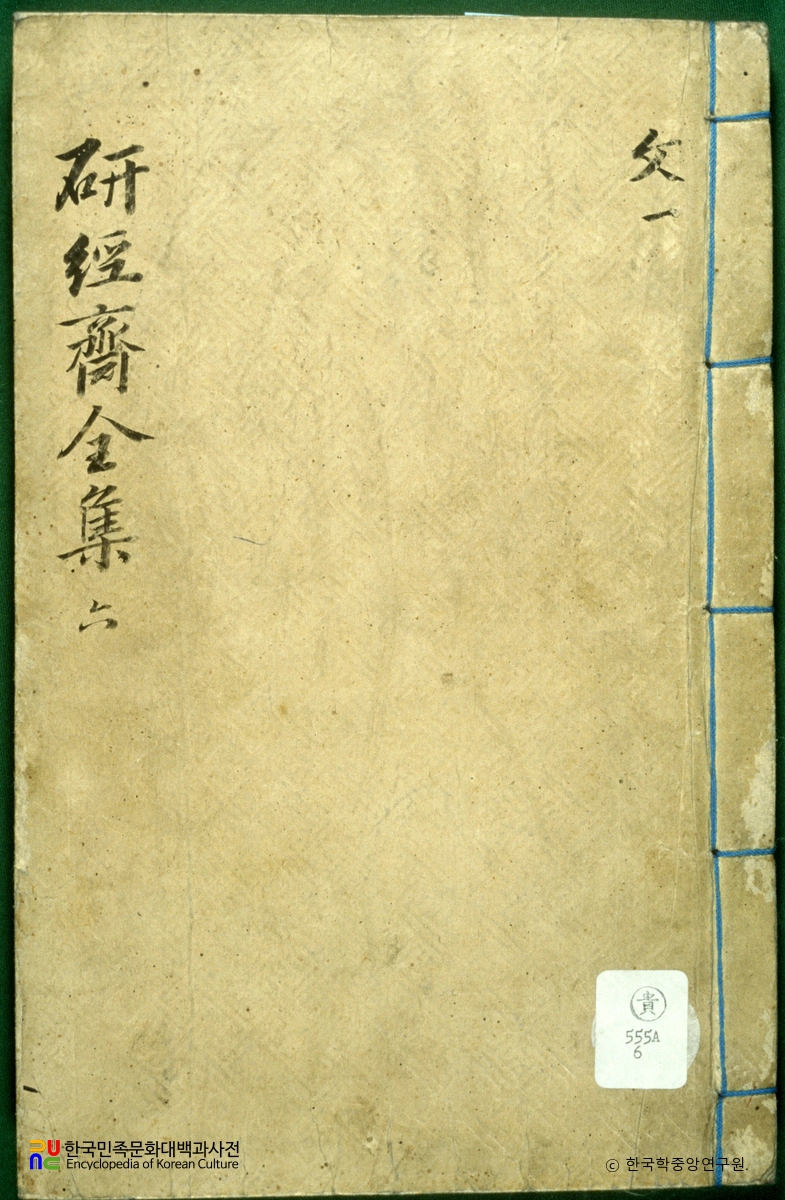 文一
研經齋全集 六
貴
555A
6
한국민족문화대백과사전
Encyclopedia of Korean Culture
© 한국학중앙연구원.